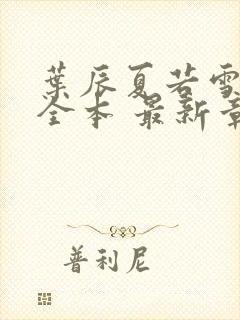 葉辰夏若雪
全本 最新章
普利尼